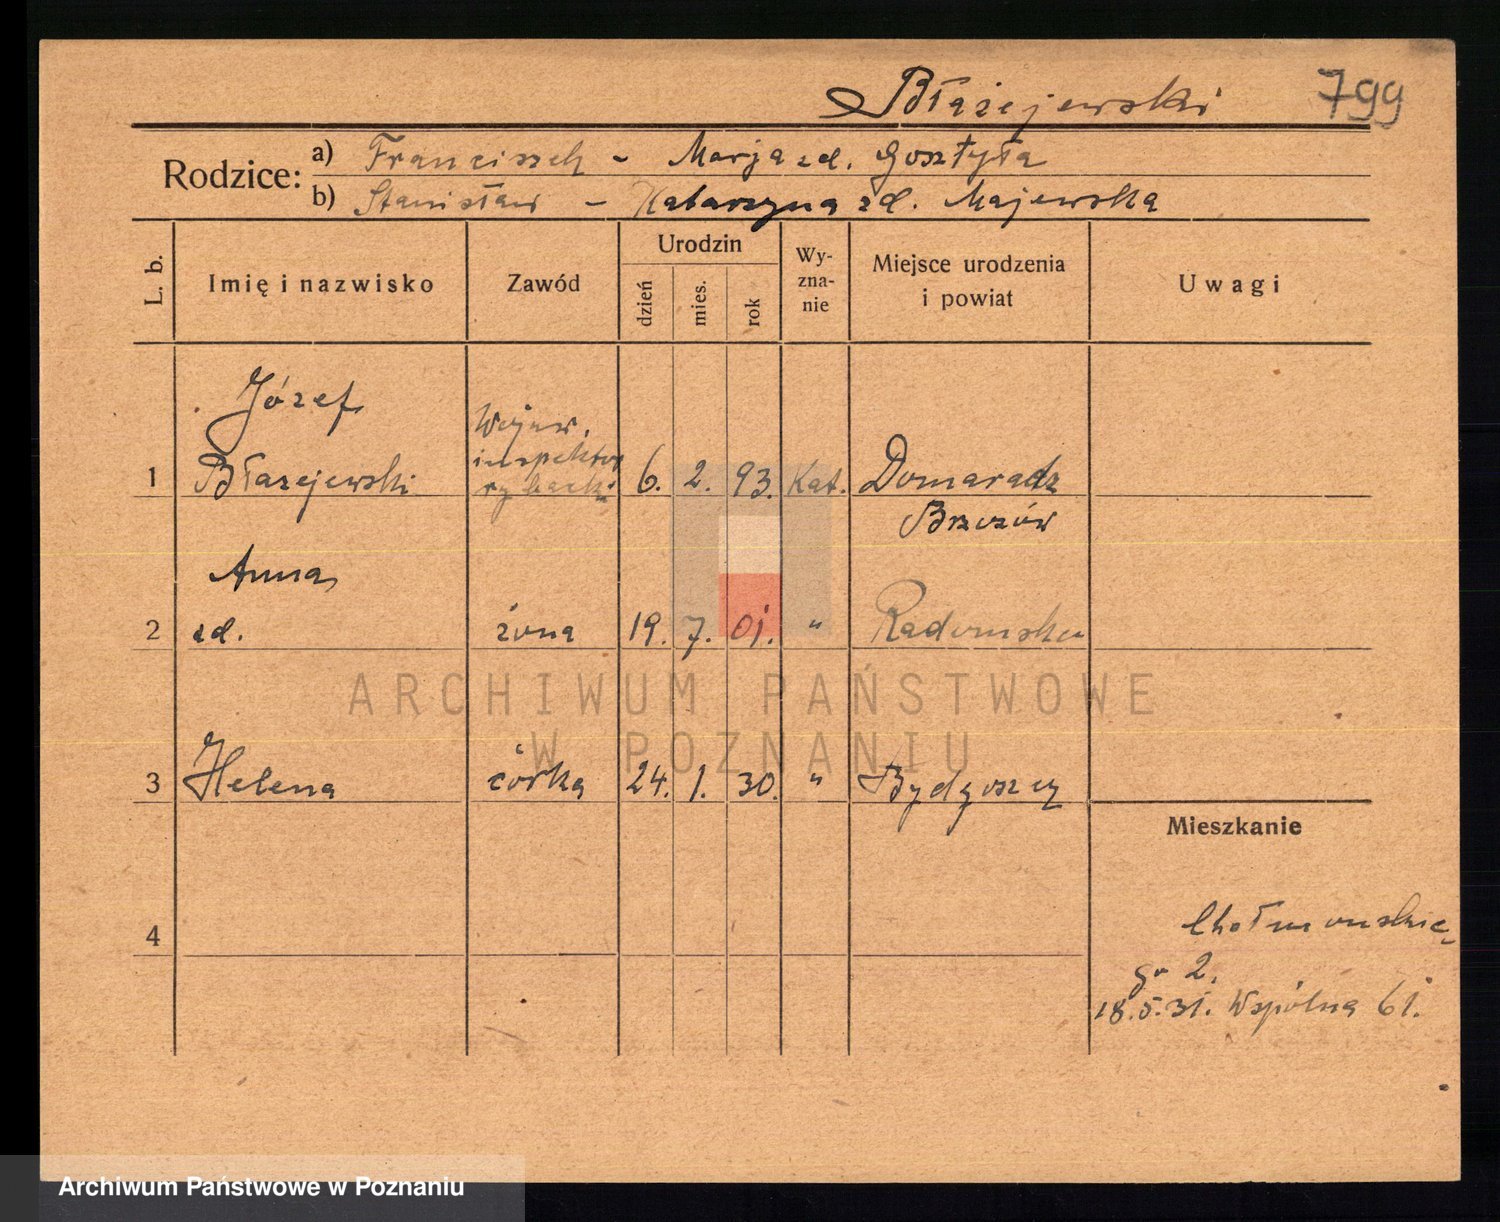 Błażejewski 799
Rodzice: a) Franciszek - Marja zd. Gosztyła
b) Stanisław - Katarzyna zd. Majewska
L. b. Imię i nazwisko Zawód Urodzin dzień mies. rok Wy-zna-nie Miejsce urodzenia i powiat Uwagi
Józef
Wojew.
inspektor
1 Błażejewski rybacki 6. 2. 93. Kat. Domaradz
Brzozów
Anna
2 zd. żona 19. 7. 01. " Radomsko
ARCHIWUM PAŃSTWOWE
W POZNANIU
3 Helena córka 24. 1. 30. " Bydgoszcz
Mieszkanie
4
go 2.
18.5.31. Wspólna 61.
Archiwum Państwowe w Poznaniu